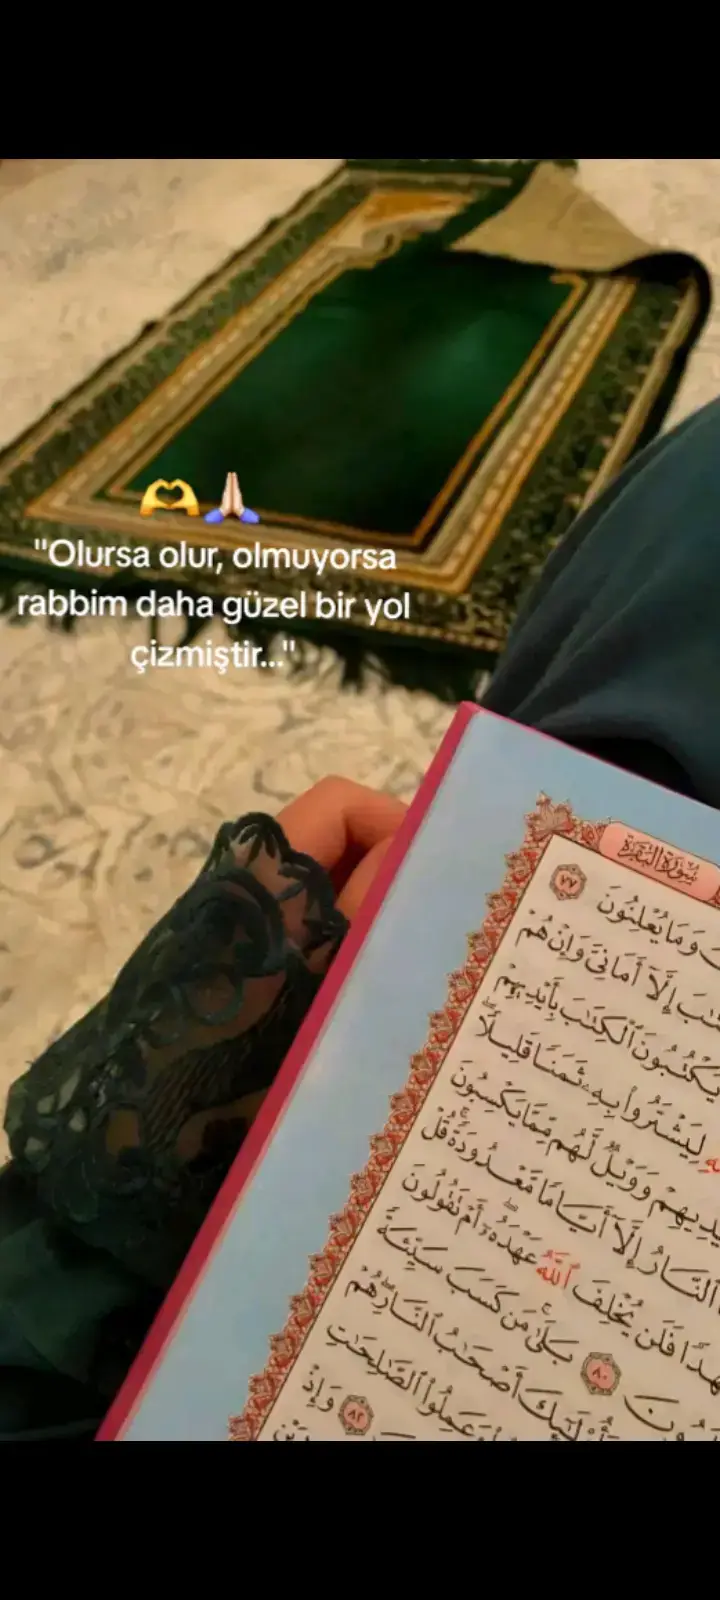 🫶🙏🏻
"Olursa olur, olmuyorsa
rabbim daha güzel bir yol
çizmiştir..."
سُورَةُ الْبَقَرَةِ
وَمَا يُعْلِنُونَ ٧٧
إِلَّآ أَمَانِيَّ وَإِنْ هُمْ
يَكْتُبُونَ ٱلْكِتَٰبَ بِأَيْدِيهِمْ
لِيَشْتَرُوا۟ بِهِۦ ثَمَنًا قَلِيلًا
وَوَيْلٌ لَّهُم مِّمَّا يَكْسِبُونَ
ٱلنَّارُ إِلَّآ أَيَّامًا مَّعْدُودَةً قُلْ
فَلَن يُخْلِفَ ٱللَّهُ عَهْدَهُۥٓ أَمْ تَقُولُونَ
٨٠ بَلَىٰ مَن كَسَبَ سَيِّئَةً
أَصْحَٰبُ ٱلنَّارِ هُمْ
وَعَمِلُوا۟ ٱلصَّٰلِحَٰتِ
٨٢ وَإِذْ